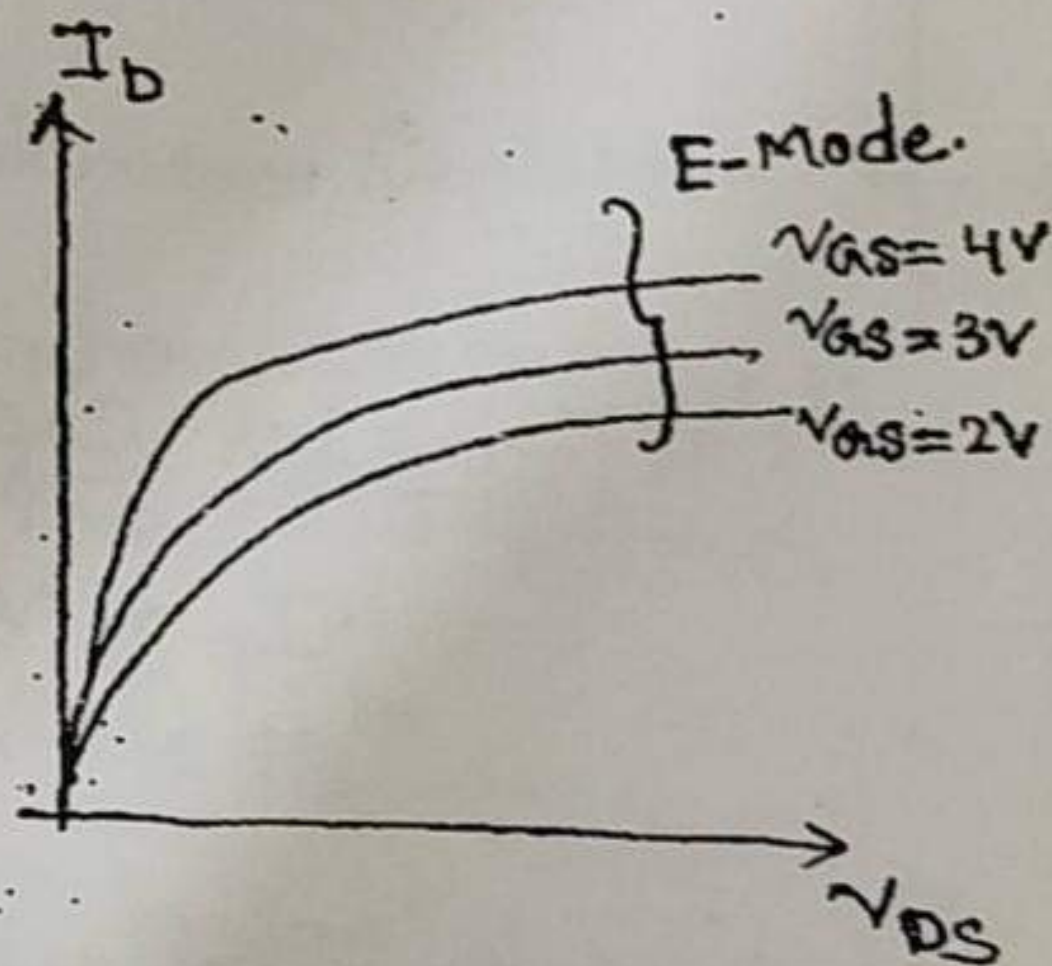 I_D
E-Mode.
V_GS = 4V
V_GS = 3V
V_GS = 2V
V_DS